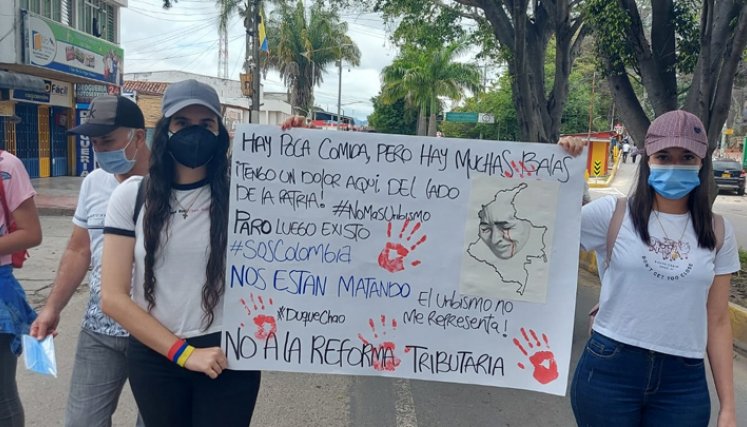 HAY POCA COMIDA, PERO HAY MUCHAS BALAS
¡TENGO UN DOLOR AQUÍ, DEL LADO
DE LA PATRIA! #NOMASURIBISMO
PARO LUEGO EXISTO
#SOSCOLOMBIA
NOS ESTAN MATANDO
EL URIBISMO NO
ME REPRESENTA!
#DUQUECHAO
NO A LA REFORMA TRIBUTARIA
DON'T
GET TOO CLOSE